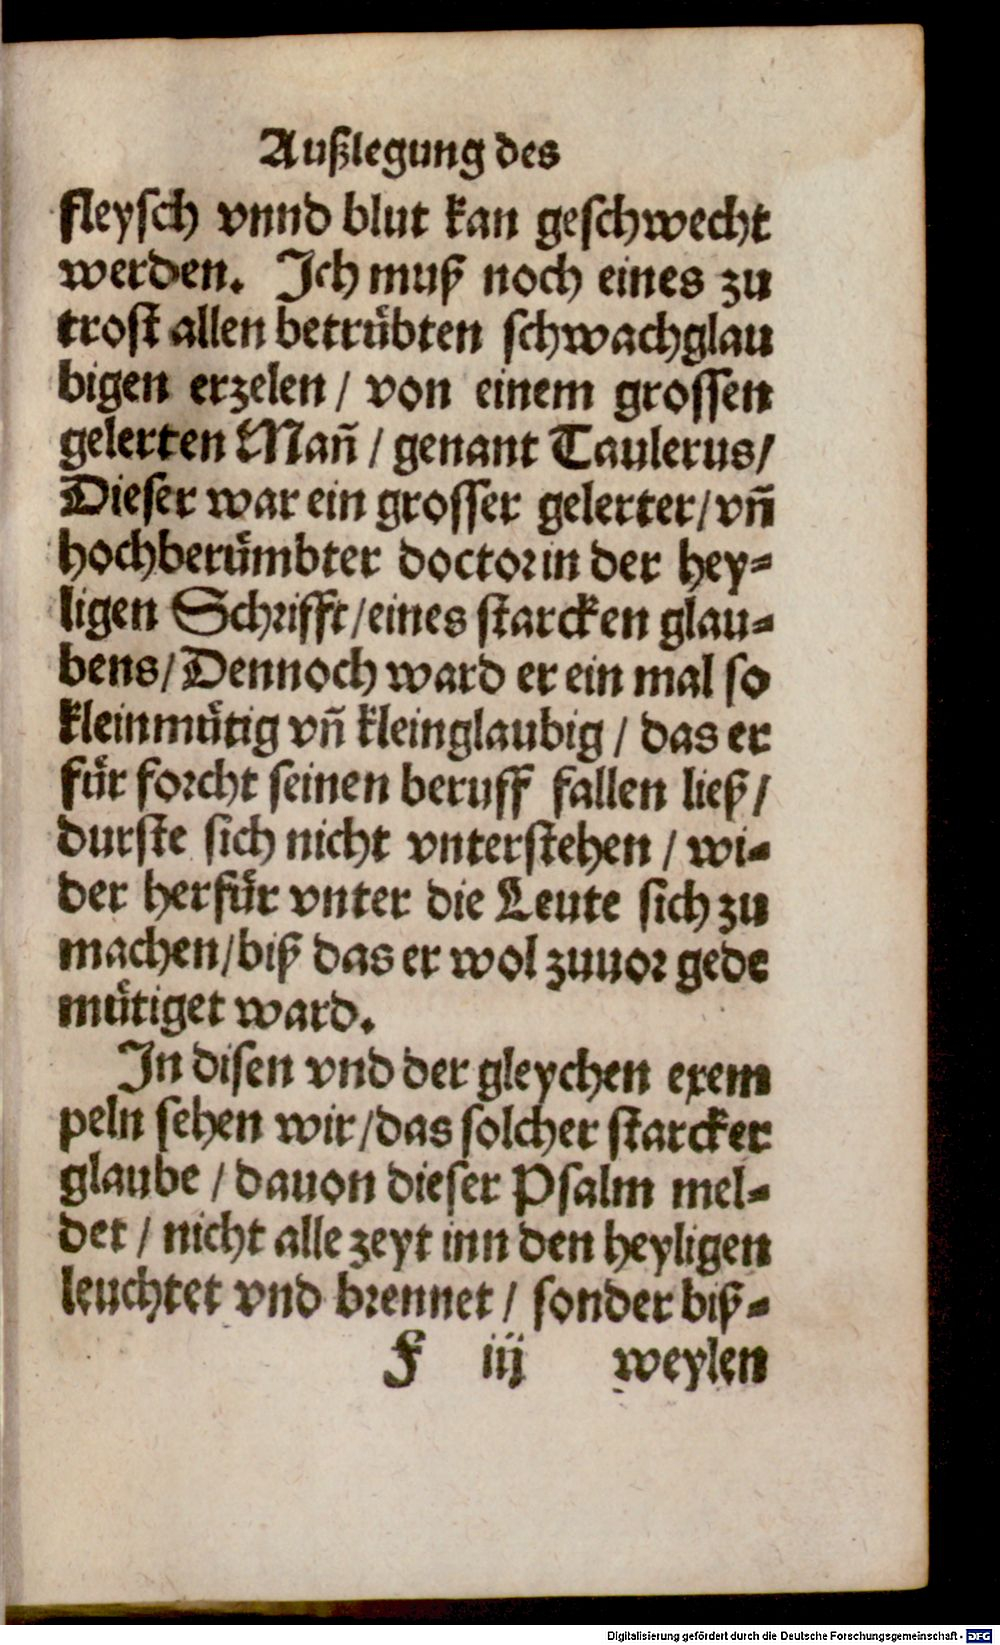 Außlegung des
fleysch vnnd blut kan geschwecht
werden. Ich muß noch eines zu
trost allen betruͤbten schwachglau
bigen erzelen / von einem grossen
gelerten Mañ / genant Taulerus /
Dieser war ein grosser gelerter / vñ
hochberuͤmbter doctor in der hey⸗
ligen Schrifft / eines starcken glau⸗
bens / Dennoch ward er ein mal so
kleinmuͤtig vñ kleinglaubig / das er
fuͤr forcht seinen beruff fallen ließ /
durste sich nicht vnterstehen / wi⸗
der herfuͤr vnter die Leute sich zu
machen / biß das er wol zuuor gede
muͤtiget ward.
In disen vnd der gleychen exem
peln sehen wir / das solcher starcker
glaube / dauon dieser Psalm mel⸗
det / nicht alle zeyt inn den heyligen
leuchtet vnd brennet / sonder biß⸗
F iij weylen
Digitalisierung gefördert durch die Deutsche Forschungsgemeinschaft - DFG